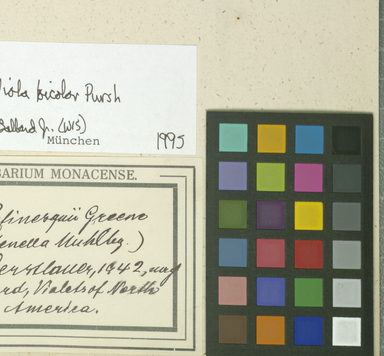 Viola bicolor Pursh
Ballard Jr. (WIS)
München 1995
BARIUM MONACENSE.
finesquii Greene
tenella Muhlbg.)
1942, and
Violets of North
America.